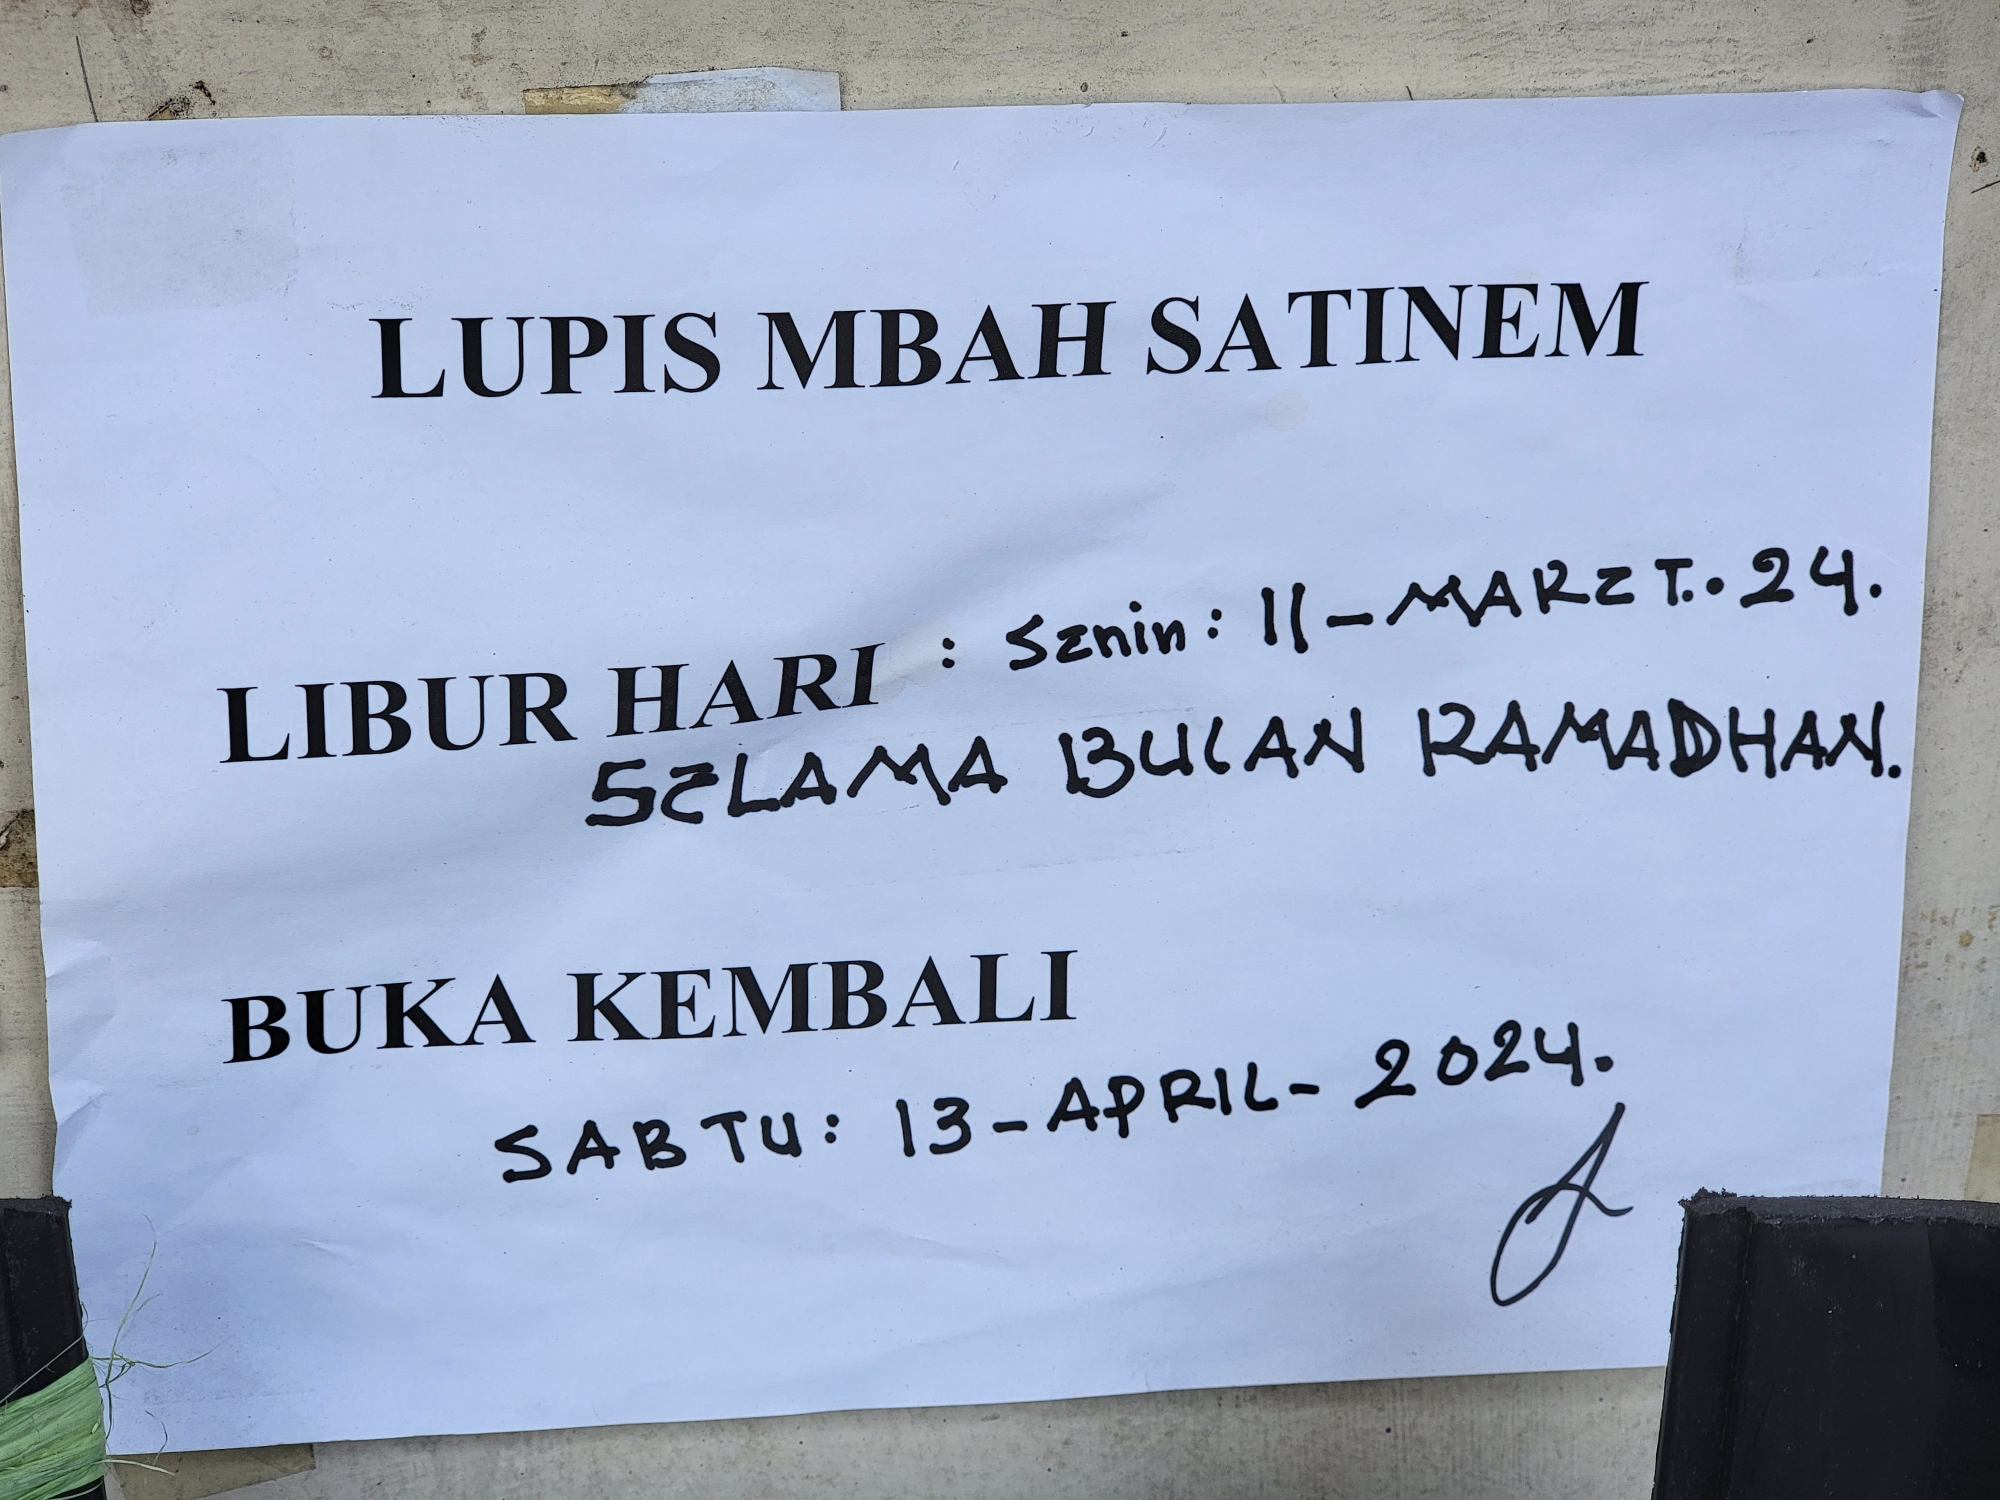 LUPIS MBAH SATINEM
LIBUR HARI : Senin : 11 - MARET. . 24.
SELAMA BULAN RAMADHAN.
BUKA KEMBALI
SABTU : 13 - APRIL - 2024.